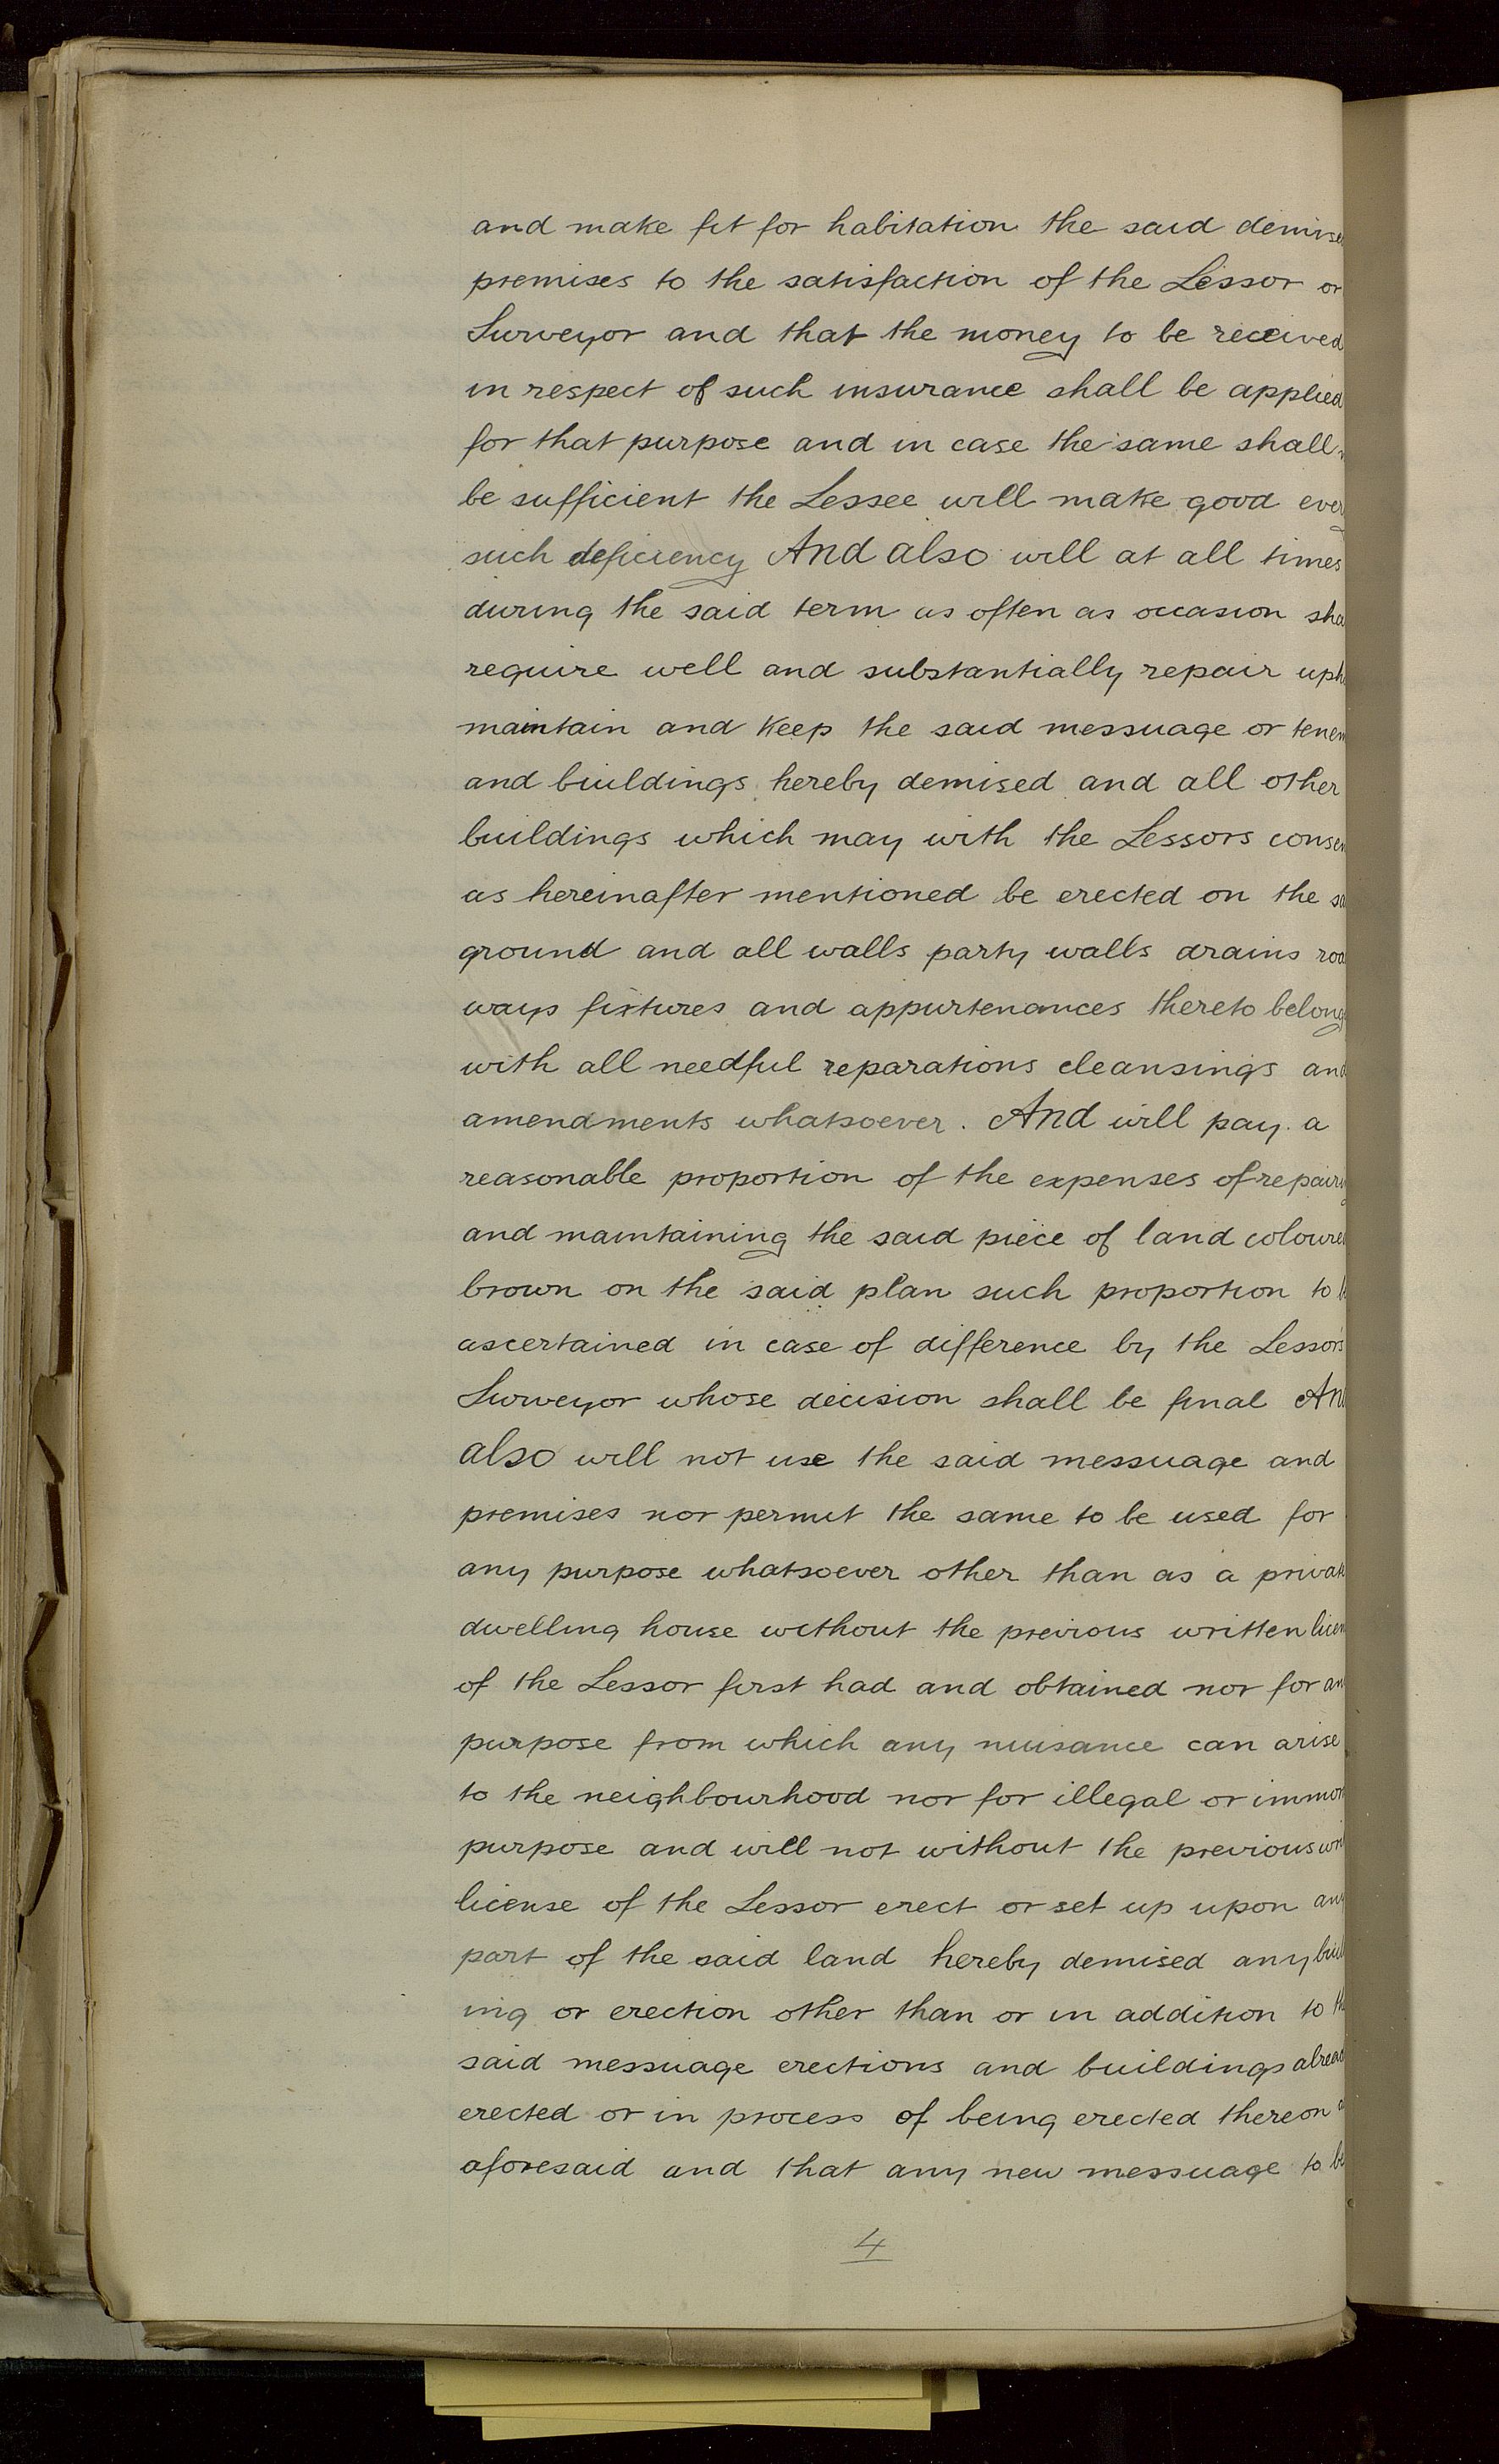 and make fit for habitation the said demise
premises to the satisfaction of the Lessor or
Surveyor and that the money to be received
in respect of such insurance shall be applied
for that purpose and in case the same shall
be sufficient the Lessee will make good ever
such deficiency And also will at all times
during the said term as often as occasion sha
require well and substantially repair uph
maintain and keep the said messuage or tenem
and buildings hereby demised and all other
buildings which may with the Lessors consen
as hereinafter mentioned be erected on the sa
ground and all walls party walls drains roa
ways fixtures and appurtenances thereto belong
with all needful reparations cleansings and
amendments whatsoever. And will pay a
reasonable proportion of the expenses of repairing
and maintaining the said piece of land coloured
brown on the said plan such proportion to b
ascertained in case of difference by the Lessors
Surveyor whose decision shall be final An
also will not use the said messuage and
premises nor permit the same to be used for
any purpose whatsoever other than as a private
dwelling house without the previous written licen
of the Lessor first had and obtained nor for an
purpose from which any nuisance can arise
to the neighbourhood nor for illegal or immor
purpose and will not without the previous writ
license of the Lessor erect or set up upon any
part of the said land hereby demised any buil
ing or erection other than or in addition to th
said messuage erections and buildings alread
erected or in process of being erected thereon a
aforesaid and that any new messuage to be
4